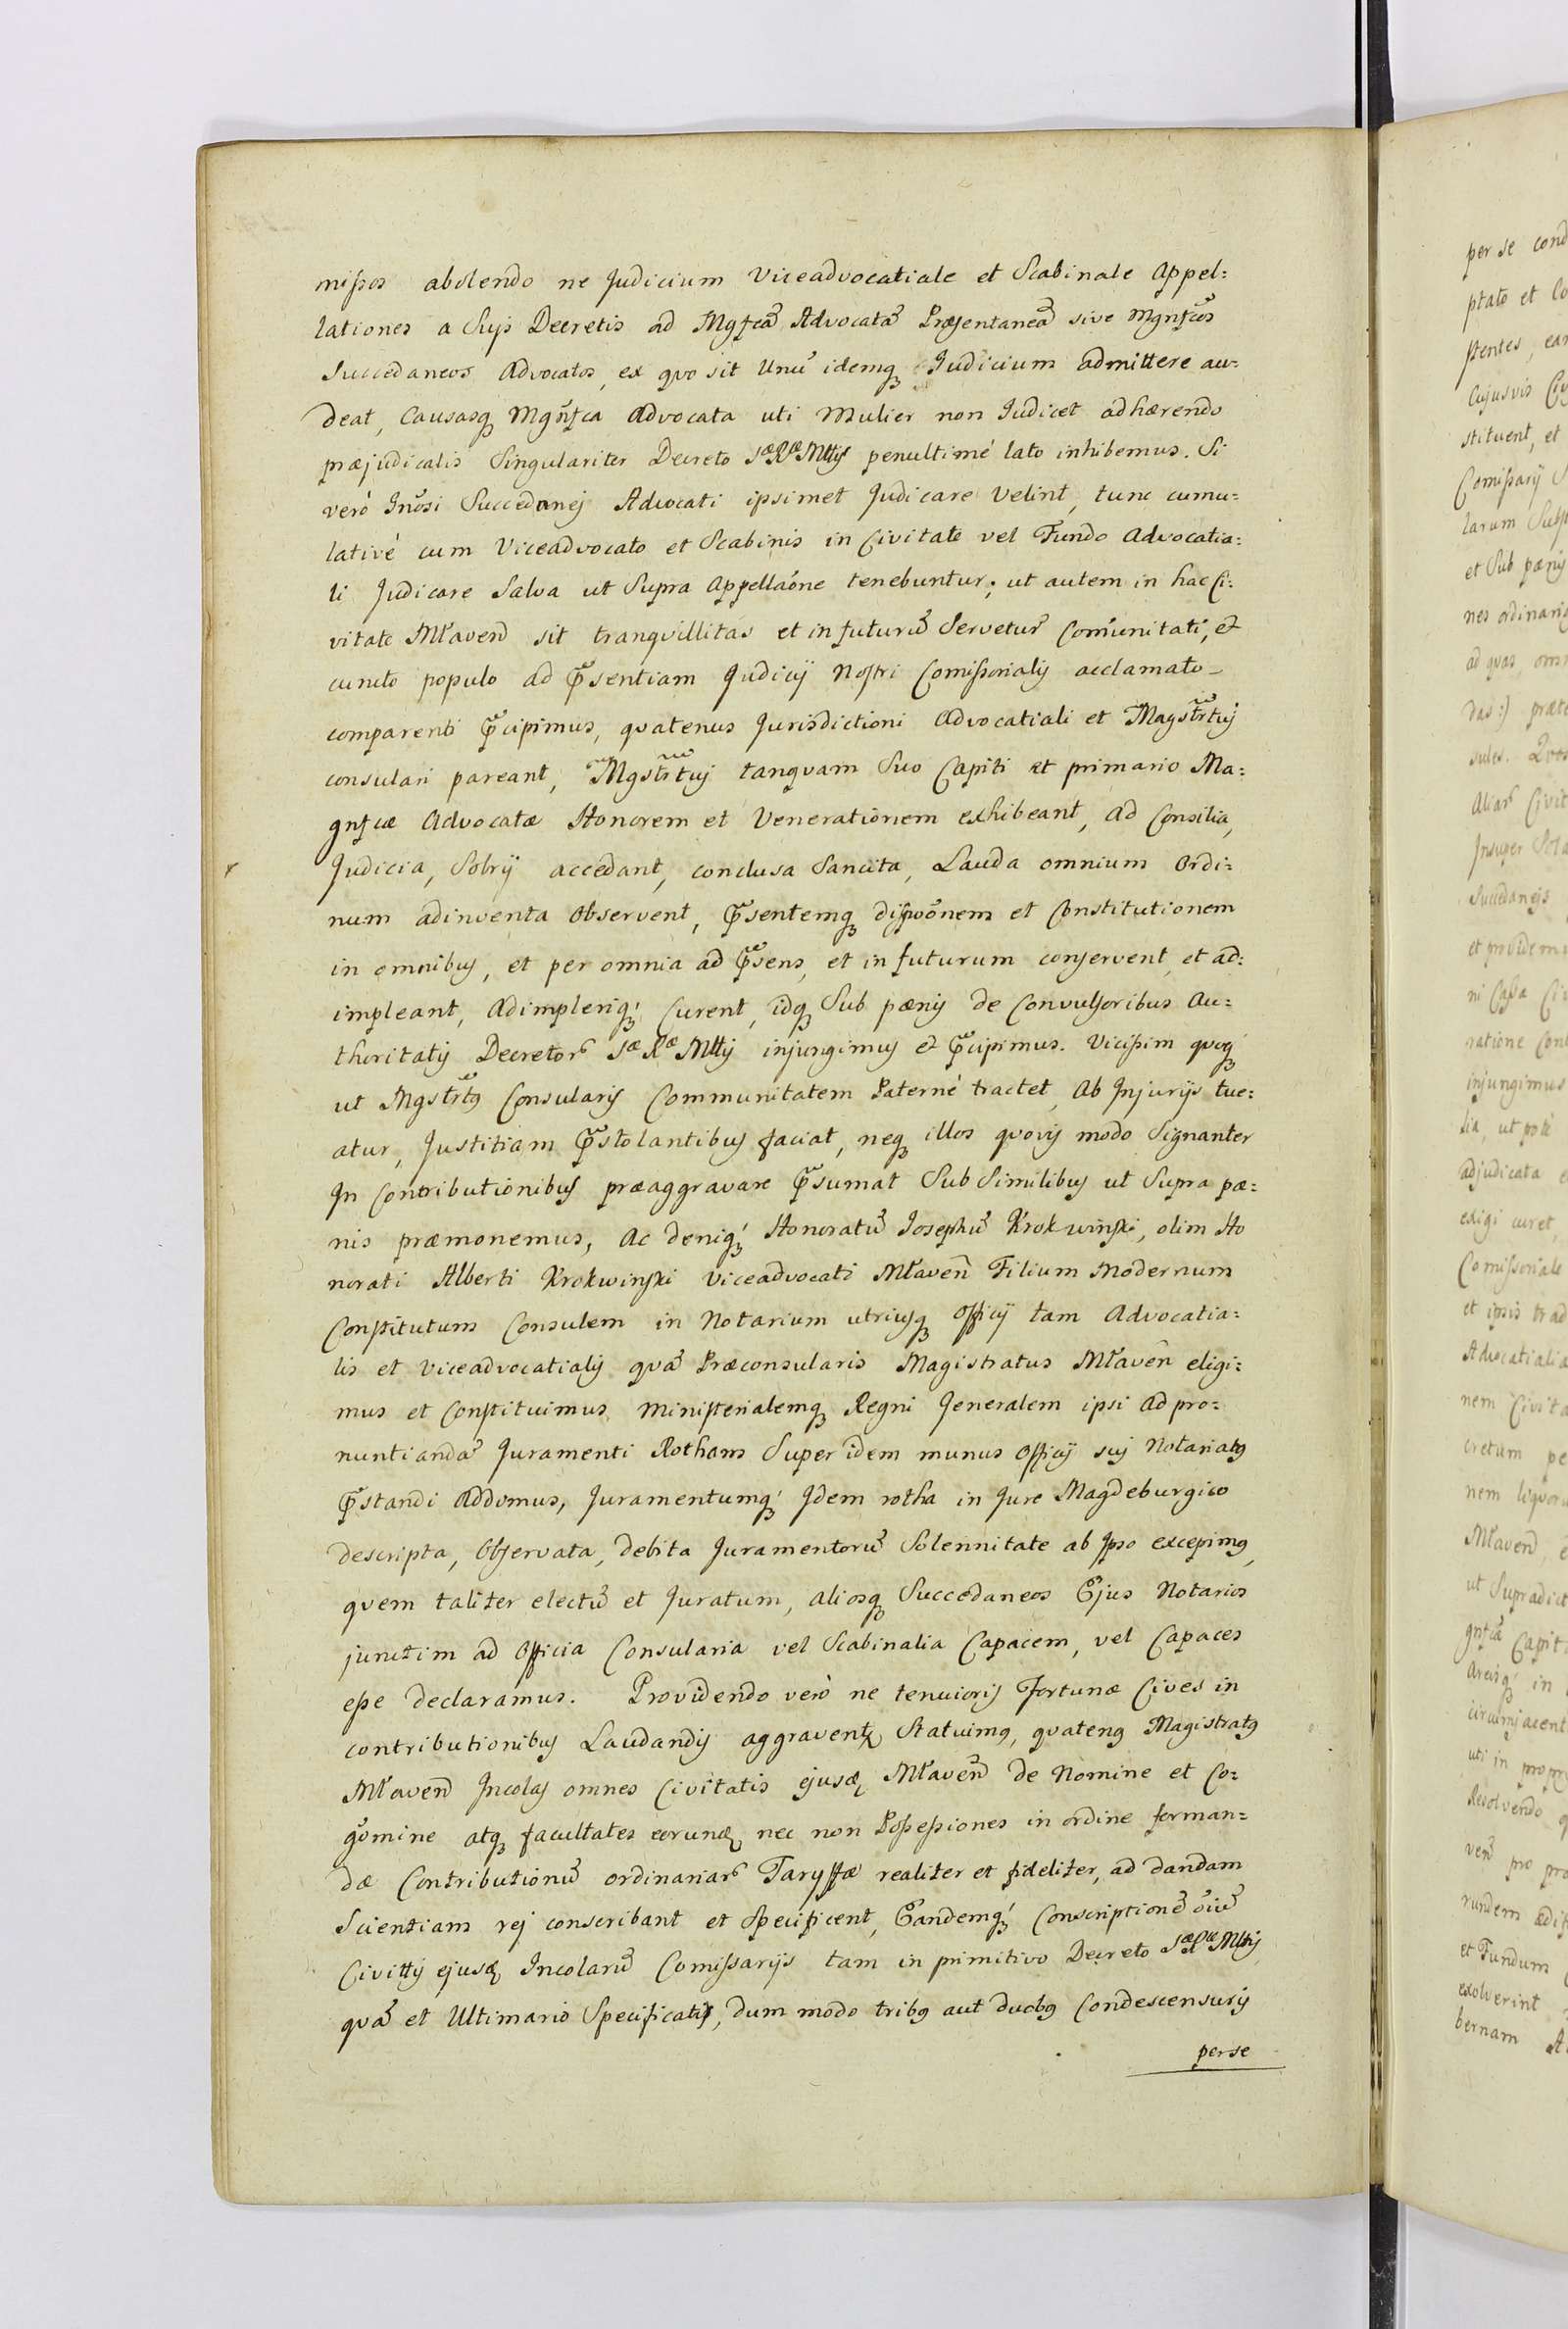 missos abolendo ne Judicium Viceadvocatiale et Scabinale Appel:
lationes a Suis Decretis ad Mgfcã Advocatã Præsentaneã sive Mgnfcõs
Succedaneos Advocatos, ex quo sit Unũ idemq Judicium admittere au-
deat, Causasq Mgñfca Advocata uti Mulier non Judicet adhærendo
præjudicalis Singulariter Decreto Sæ Ræ Mttis penultimé lato inhibemus. Si
veró Jnõsi Succedanej Advocati ipsimet Judicare Velint, tunc cumu:
lativé cum Viceadvocato et Scabinis in Civitate vel Fundo Advocatia:
li Judicare Salva ut Supra Appellaóne tenebuntur; ut autem in hac Ci:
vitate Mławeñ sit tranquillitas et in futurũ Servetur Com̃unitati, et
cuncto populo ad P̃sentiam Judicij Nostri Comissorialis acclamato
comparenti P̃cipimus, quatenus Jurisdictioni Advocatiali et Magstr̃tuj
consulari pareant, Mgstr̃tuj tanquam Suo Capiti et primario Ma:
gnfcæ Advocatæ Honorem et Venerationem exhibeant, ad Consilia,
Judicia, Sobrij accedant, conclusa Sancita, Lauda omnium Ordi:
num adinventa Observent, P̃sentemq dispoõnem et Constitutionem
in omnibus, et per omnia ad P̃sens, et in futurum conservent, et ad:
impleant, Adimpleriq́ Curent, idq Sub pænis de Convulsoribus Au:
thoritatis Decretor̃ Sæ Ræ Mttis injungimus et P̃cipimus. Vicissim quoq
ut Mgstr̃tg Consularis Communitatem Paterné tractet, ab Jnjurijs tue:
atur, Justitiam P̃stolantibus faciat, neq illos quovis modo Signanter
Jn Contributionibus præaggravare P̃sumat Sub Similibus ut Supra pæ:
nis præmonemus, Ac deniq́ Honoratũ Josephũ Krokwinski, olim Ho
norati Alberti Krokwinski Viceadvocati Mławeñ Filium Modernum
Constitutum Consulem in Notarium utriusq Officij tam Advocatia:
lis et Viceadvocatialis quã Præconsularis Magistratus Mławeñ eligi:
mus et Constituimus Ministerialemq Regni Jeneralem ipsi ad pro:
nuntiandã Juramenti Rotham Super idem munus Officij sui Notariatg
P̃standi Addomus, Juramentumq́ Jdem rotha in Jure Magdeburgico
descripta, Observata, debita Juramentorũ Solennitate ab Jpso excepimg,
quem taliter electũ et Juratum, aliosq Succedaneos Ejus Notarios
junctim ad Officia Consularia vel Scabinalia Capacem, vel Capaces
esse declaramus. Providendo veró ne tenuioris Fortunæ Cives in
contributionibus Laudandis aggraventr Statuimg, quateng Magistratg
Mławeñ Jncolas omnes Civitatis ejusd Mławeñ de Nomine et Co:
gõmine atq facultates eorund nec non Possessiones in ordine forman-
dæ Contributionũ ordinariar̃ Taryffæ realiter et fideliter, ad dandam
Scientiam rej conscribant et Specificent, Eandemq́ Conscriptionẽ oĩũ
Civittis ejusd Incolarũ Comissarijs tam in primitivo Decreto Sæ Ræ Mttis
quã et Ultimario Specificatis, dum modo tribg aut duobg Condescensuris
per se
per se cond
ptato et lo
stentes, ear
Cujusvis Civ
stituent, et
Comissarij
larum Subs
et Sub pænis
nes ordinari
ad quas om
das:) præte
sules. Quos
aliar̃ Civit
Insuper
Succedaneis
et providem
ni Cassa Ci
ratione Con
injungimus
lia, ut poté
adjudicata e
exigi curet,
Comissoriale
et ipsis trad
Advocatialia
nem Civita
cretum pe
nem liquor
Mławeñ, e
ut Supradict
gnfcã Capit
Areisq́ in
circumjacent
uti in propr
Resolvendo q
veñ pro pro
rundem ædif
et Fundum
exolverint
bernam A